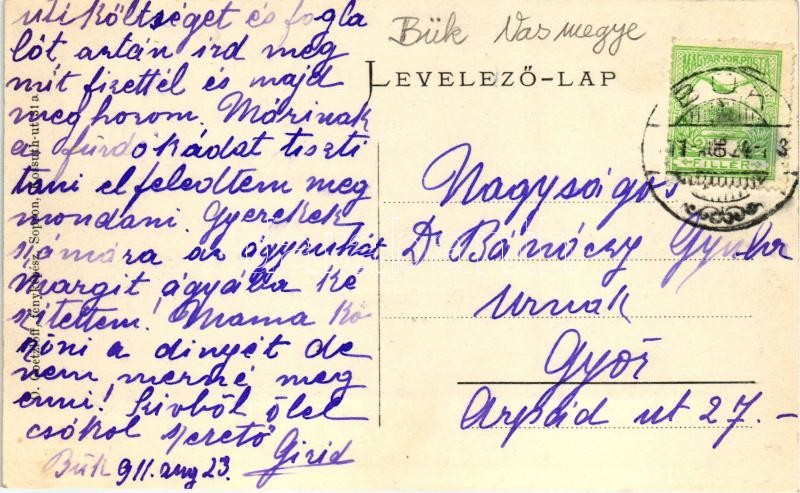 uti költséget és fogla
lót aztán ird meg
mit fizettél és majd
meghozom. Márinak
a fürdőkádat tiszti
tani elfeledtem meg
mondani. Gyerekek
számára az ágyruhát
Margit ágyába ké
szítettem! Mama kö
szöni a dinyét de
nem merné meg
enni! Szivből ölel
csókol szerető
Bük 911. aug 23.
Bük Vasmegye
LEVELEZŐ-LAP
MAGYAR KIR. POSTA
FILLÉR
BÜK
Nagyságos
Dr Bánóczy Gyula
urnak
Győr
Árpád ut 27.-
fényképész, Sopron, Kossuth-ut